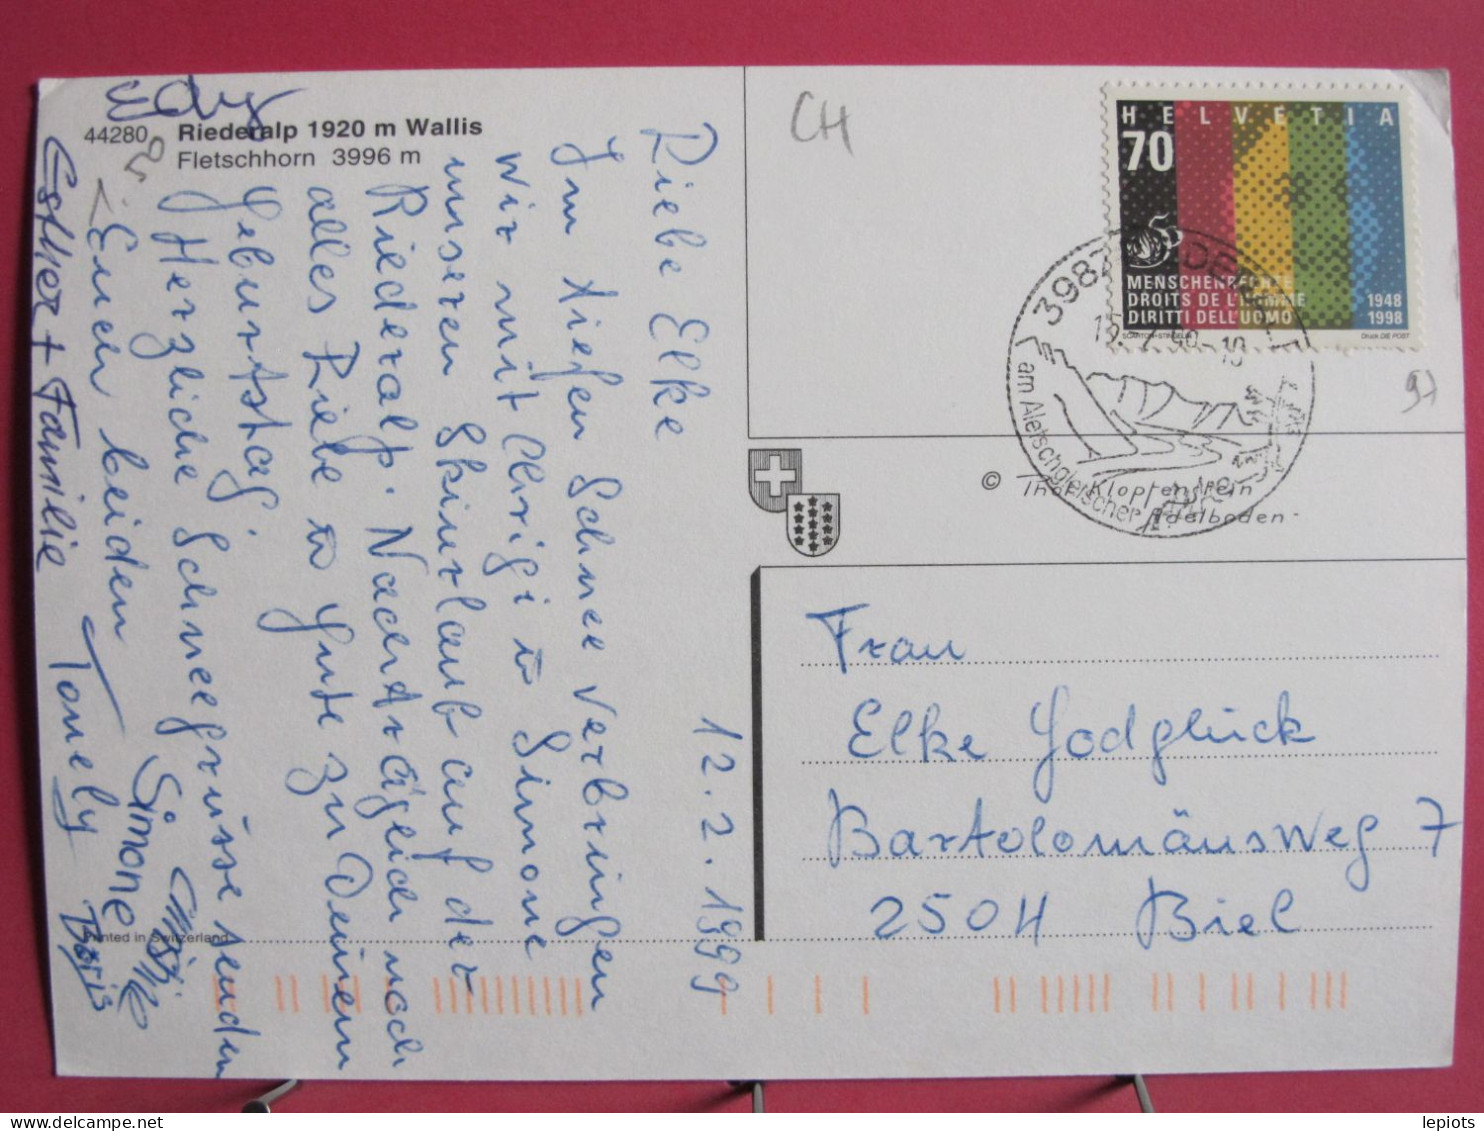 44280 Riederalp 1920 m Wallis
Fletschhorn 3996 m
12.2.1999
Liebe Elke
Im tiefen Schnee verbringen
wir mit Chrigi u Simone
unseren Skiurlaub auf der
Riederalp. Nachträglich noch
alles Liebe u Gute zu Deinem
Geburtstag.
Herzliche Schneegrüsse senden
Euch beiden Tonely
Esther + Familie
Edy
Simone
Boris
Printed in Switzerland
CH
HELVETIA
70
MENSCHENRECHTE
DROITS DE L'HOMME
DIRITTI DELL'UOMO
1948
1998
3987
am Aletschgletscher
97
© Klopfenstein
Adelboden
Frau
Elke Jodglück
Bartolomäusweg 7
2504 Biel
lepiots